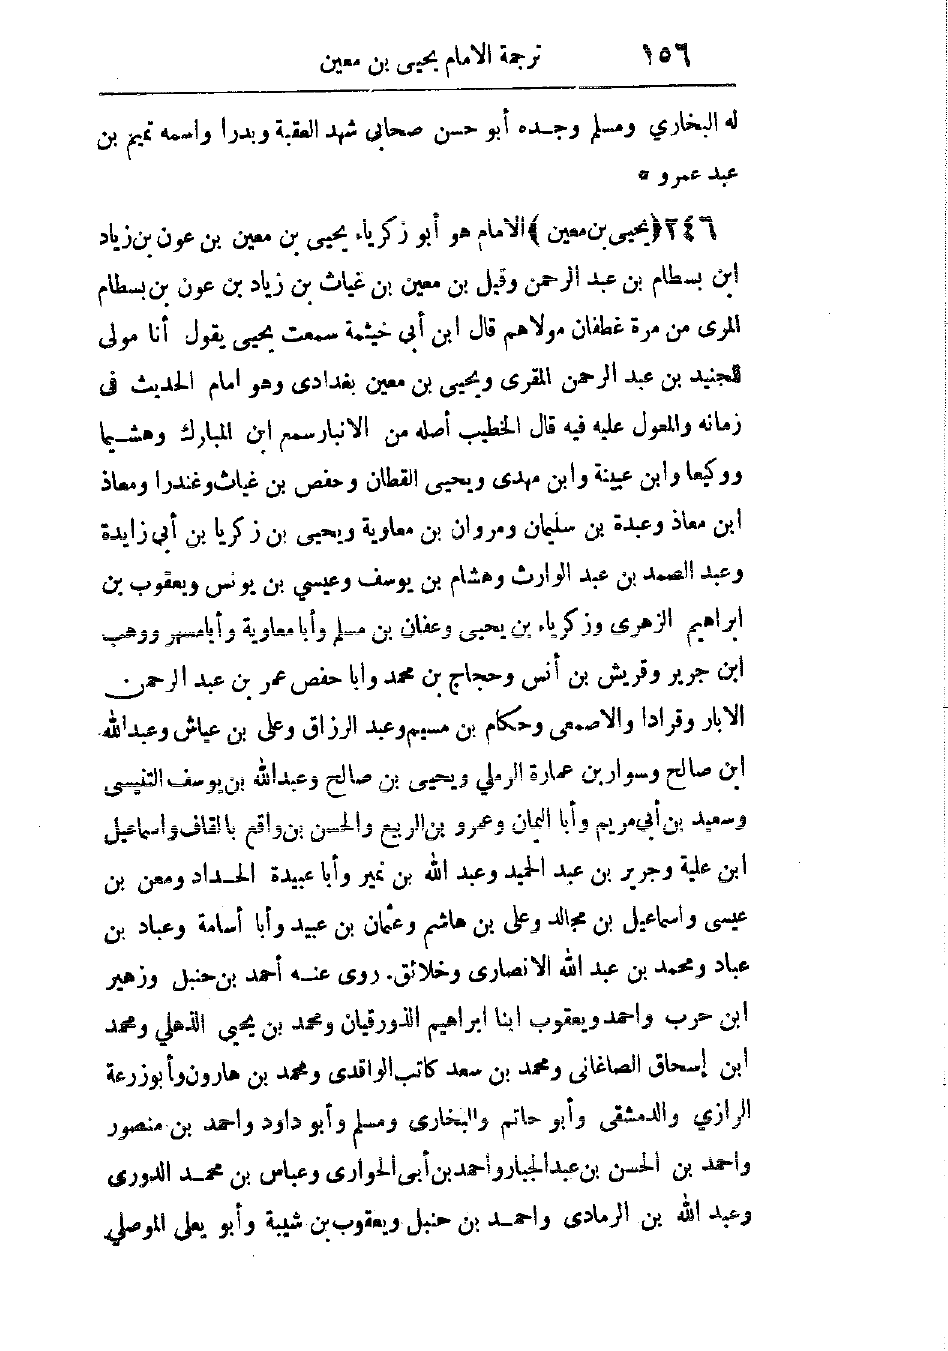 ١٥٦ ترجمة الامام يحيى بن معين
له البخاري ومسلم وجـده أبو حسن صحابى شهد العقبة وبدرا واسمه تميم بن
عبد عمرو *
٢٤٦ ﴿ يحيى بن معين ﴾ الامام هو أبو زكرياء يحيى بن معين بن عون بن زياد
ابن بسطام بن عبد الرحمن وقيل بن معين بن غياث بن زياد بن عون بن بسطام
المرى من مرة غطفان مولاهم قال ابن أبي خيثمة سمعت يحيى يقول أنا مولى
للجنيد بن عبد الرحمن المقرى ويحيى بن معين بغدادى وهو امام الحديث فى
زمانه والمعول عليه فيه قال الخطيب أصله من الانبار سمع ابن المبارك وهشـيما
ووكيعا وابن عيينة وابن مهدى ويحيى القطان وحفص بن غياث وغندرا ومعاذ
ابن معاذ وعبدة بن سليمان ومروان بن معاوية ويحيى بن زكريا بن أبي زايدة
وعبد الصمد بن عبد الوارث وهشام بن يوسف وعيسي بن يونس ويعقوب بن
ابراهيم الزهرى وزكرياء بن يحيى وعفان بن مسلم وأبا معاوية وأبا مسهر ووهب
ابن جرير وقريش بن أنس وحجاج بن محمد وابا حفص عمر بن عبد الرحمن
الابار وقرادا والاصمعى وحكام بن مسيم وعبد الرزاق وعلى بن عياش وعبد الله
ابن صالح وسوار بن عمارة الرملي ويحيى بن صالح وعبد الله بن يوسف التنيسى
وسعيد بن أبى مريم وأبا اليمان وعمرو بن الربيع والحسن بن واقع بالقاف واسماعيل
ابن علية وجرير بن عبد الحميد وعبد الله بن نمير وأبا عبيدة الحـداد ومعن بن
عيسى واسماعيل بن مجالد وعلى بن هاشم وعثمان بن عبيد وأبا أسامة وعباد بن
عباد ومحمد بن عبد الله الانصارى وخلائق. روى عنـه أحمد بن حنبل وزهير
ابن حرب واحمد ويعقوب ابنا ابراهيم الذورقيان ومحمد بن يحيي الذهلي ومحمد
ابن إسحاق الصاغانى ومحمد بن سعد كاتب الواقدى ومحمد بن هارون وأبو زرعة
الرازي والدمشقى وأبو حاتم والبخارى ومسلم وأبو داود واحمد بن منصور
واحمد بن الحسن بن عبد الجبار واحمد بن أبى الحوارى وعباس بن محمـد الدورى
وعبد الله بن الرمادى واحمـد بن حنبل ويعقوب بن شيبة وأبو يعلى الموصلي